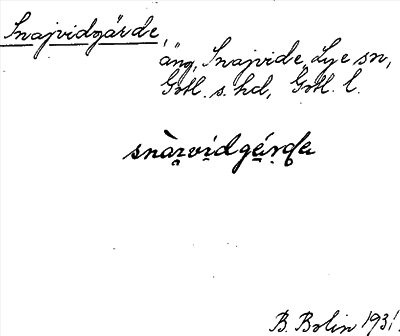 Snajvidgärde,
äng, Snajvide, Lye sn,
Gotl. s. hd, Gotl. l.
snàị̯vi̠dgä́ṛḍa
B. Bolin 1931.